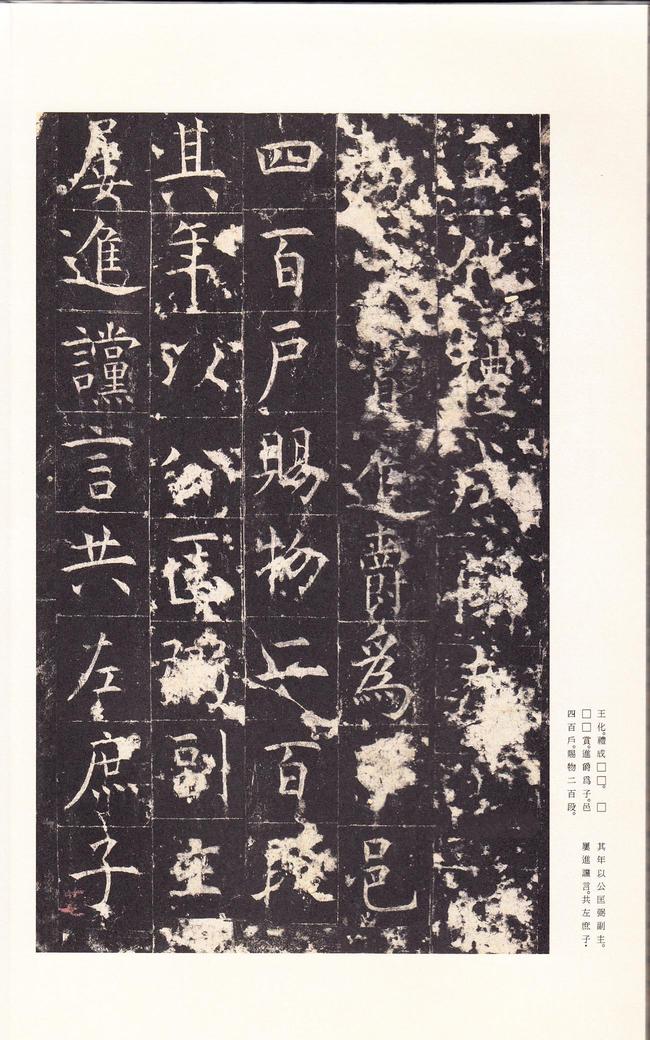 王化禮成
賞進爵爲子邑
四百戶賜物二百段
其年以公匡弼副主
屢進讜言共左庶子
王化。禮成□□。□
□□賞。進爵爲子。邑
四百戶。賜物二百段。
其年以公匡弼副主。
屢進讜言。共左庶子・